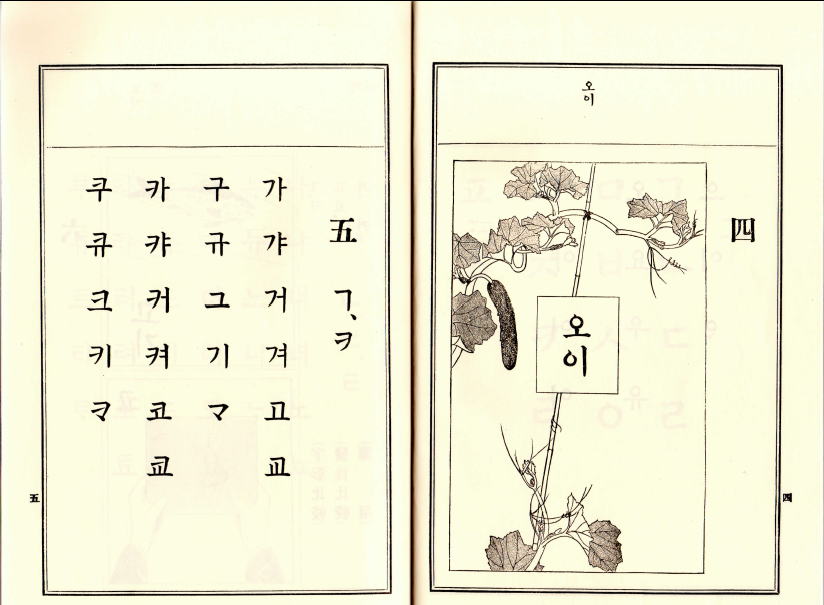 오이
四
오이
四
五 ㄱ、ㅋ
가갸거겨고교
구규그기ᄀᆞ
카캬커켜코쿄
쿠큐크키ᄏᆞ
五